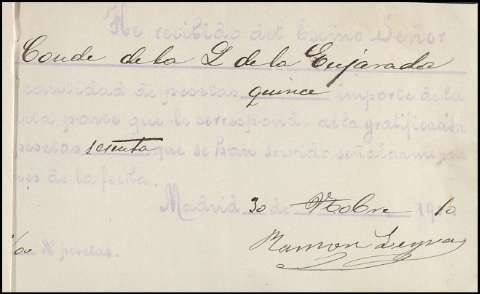 He recibido del Excmo Señor
Conde de la Q de la Enjarada
cantidad de pesetas quince importe de la
ta parte que le corresponde de la gratificación
pesetas sesenta que se han servido señalarme por
mes de la fecha.
Madrid 30 de 8bre 1910
Ramon Leyva
pesetas.